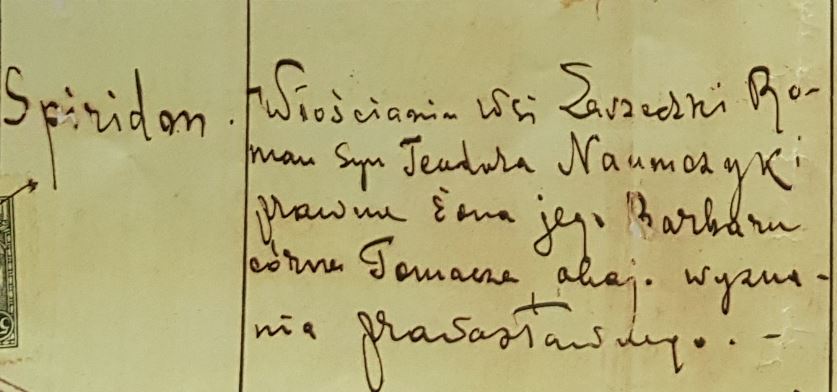 Spiridon.
Włościanin wsi Zarzeczki Ro-
man syn Teodora Naumczyki
prawna żona jego Barbara
córka Tomasza obaj. wyzna-
nia prawosławnego. -